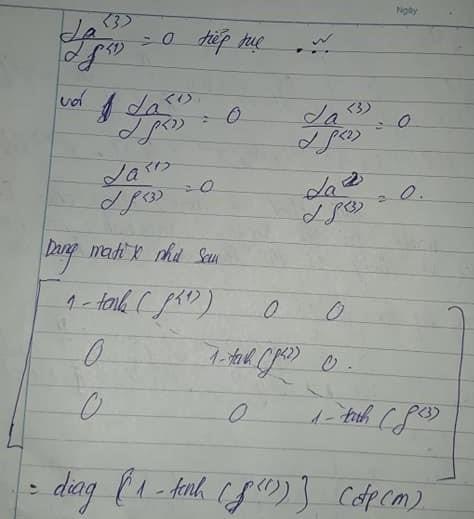 Ngày
da⁽³⁾/df⁽¹⁾ = 0 tiếp tục ...
với da⁽¹⁾/df⁽²⁾ = 0 da⁽³⁾/df⁽²⁾ = 0
da⁽¹⁾/df⁽³⁾ = 0 da²/df⁽³⁾ = 0.
Dạng matix như sau
1-tanh(f⁽¹⁾) 0 0
0 1-tanh(f⁽²⁾) 0.
0 0 1-tanh(f⁽³⁾
= diag {1-tanh(f⁽ⁱ⁾)} (dpcm)